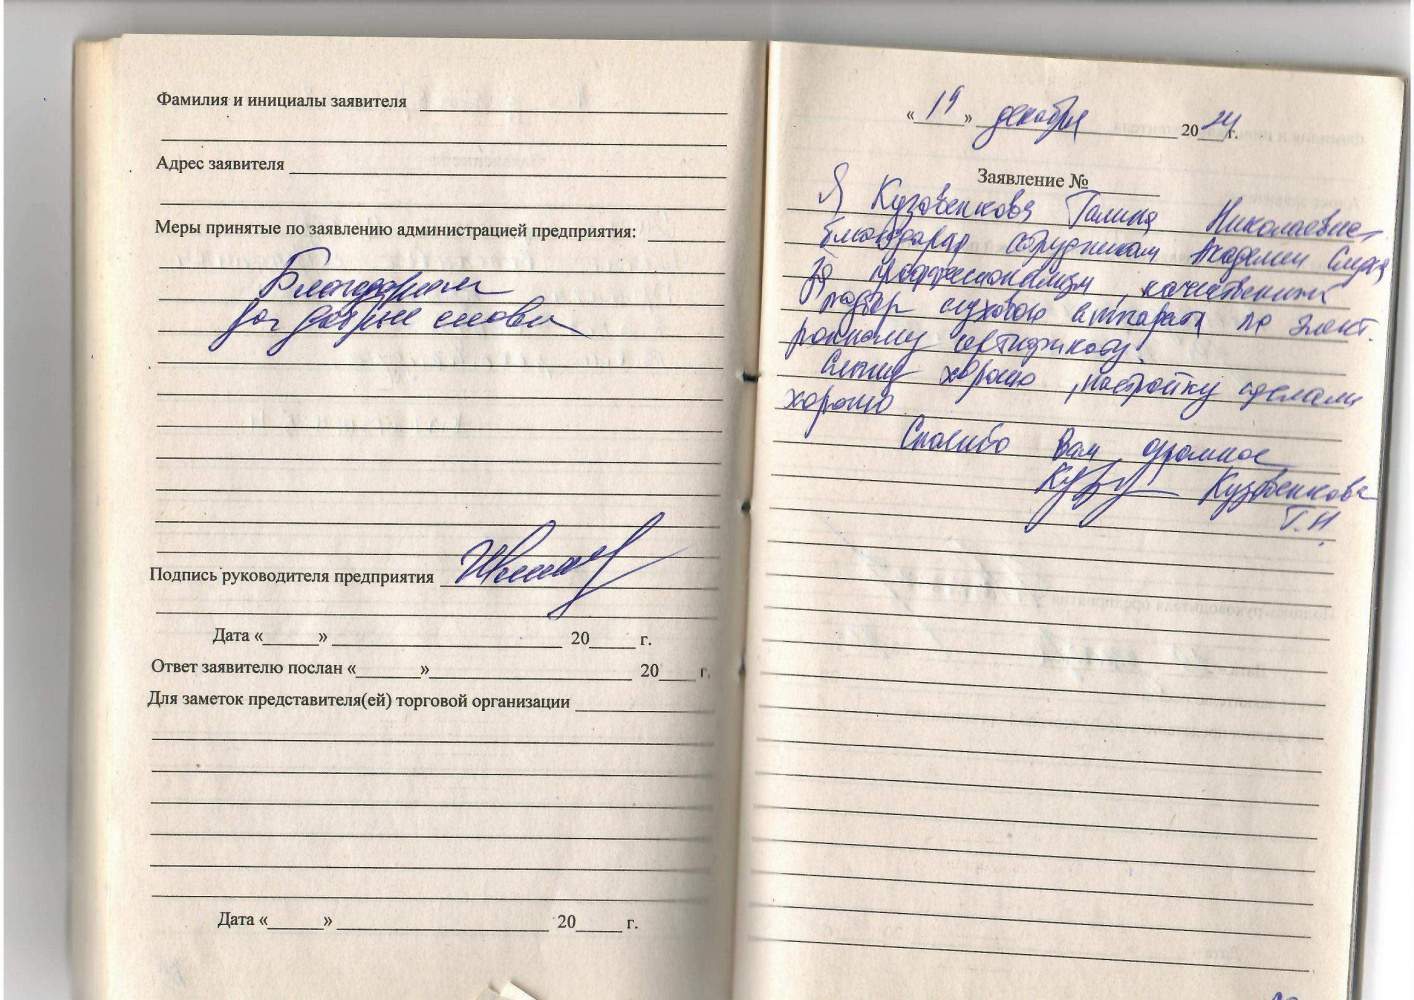 Фамилия и инициалы заявителя
Адрес заявителя
Меры принятые по заявлению администрацией предприятия:
Благодарим
за добрые слова
Подпись руководителя предприятия
Дата «______» 20_____ г.
Ответ заявителю послан «_______» 20____ г.
Для заметок представителя(ей) торговой организации
Дата «______» 20_____ г.
«19» декабря 2024г.
Заявление №
Я Кузовенкова Галина Николаевна
благодарю сотрудникам Академии Слуха
за профессионализм, качественный
подбор слухового аппарата по элект
ронному сертификату.
Слышу хорошо, настройку сделали
хорошо
Спасибо Вам огромное
Кузовенкова
Г.Н.